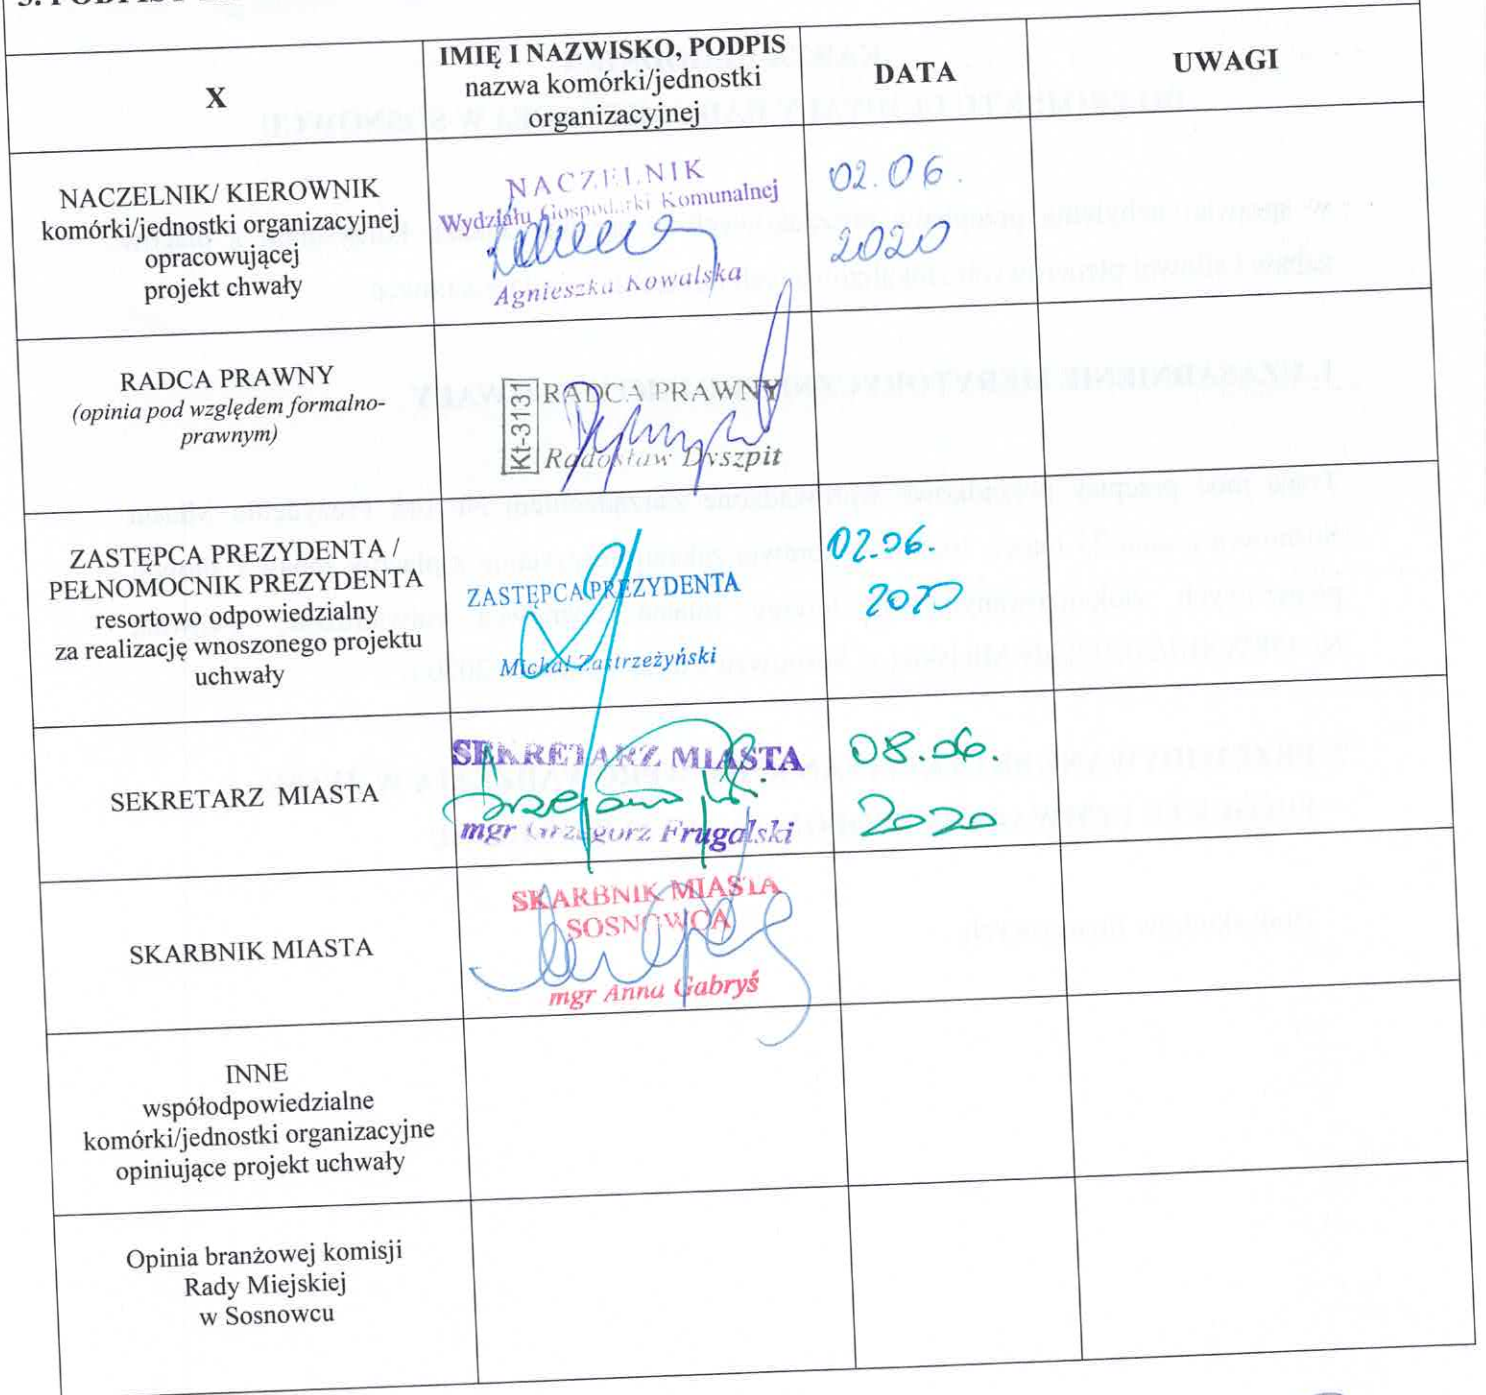 X
IMIĘ I NAZWISKO, PODPIS
nazwa komórki/jednostki
organizacyjnej
DATA
UWAGI
NACZELNIK/ KIEROWNIK
komórki/jednostki organizacyjnej
opracowującej
projekt chwały
NACZELNIK
Wydziału Gospodarki Komunalnej
Agnieszka Kowalska
02.06.
2020
RADCA PRAWNY
(opinia pod względem formalno-
prawnym)
Kt-3131
RADCA PRAWNY
Radosław Dyszpit
ZASTĘPCA PREZYDENTA /
PEŁNOMOCNIK PREZYDENTA
resortowo odpowiedzialny
za realizację wnoszonego projektu
uchwały
ZASTĘPCA PREZYDENTA
Michał Zastrzeżyński
02.06.
2020
SEKRETARZ MIASTA
SEKRETARZ MIASTA
mgr Grzegorz Frugalski
08.06.
2020
SKARBNIK MIASTA
SKARBNIK MIASTA
SOSNOWCA
mgr Anna Gabryś
INNE
współodpowiedzialne
komórki/jednostki organizacyjne
opiniujące projekt uchwały
Opinia branżowej komisji
Rady Miejskiej
w Sosnowcu